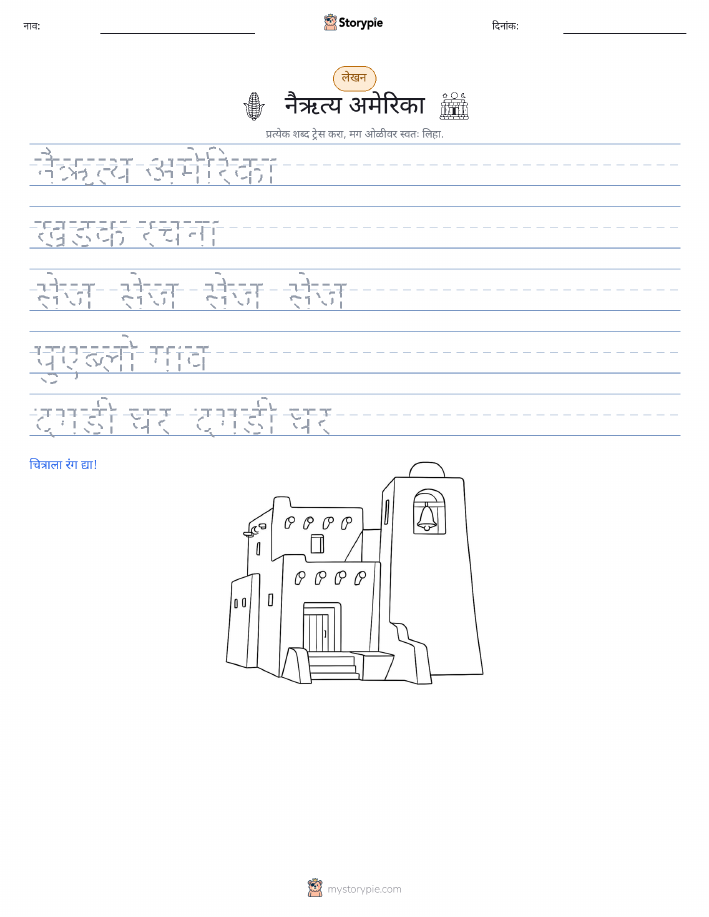 नाव:
Storypie
दिनांक:
लेखन
नैऋत्य अमेरिका
प्रत्येक शब्द ट्रेस करा, मग ओळीवर स्वतः लिहा.
नैऋत्य अमेरिका
खडक रचना
सेज सेज सेज सेज
पुएब्लो गाव
दगडी घर दगडी घर
चित्राला रंग द्या!
mystorypie.com